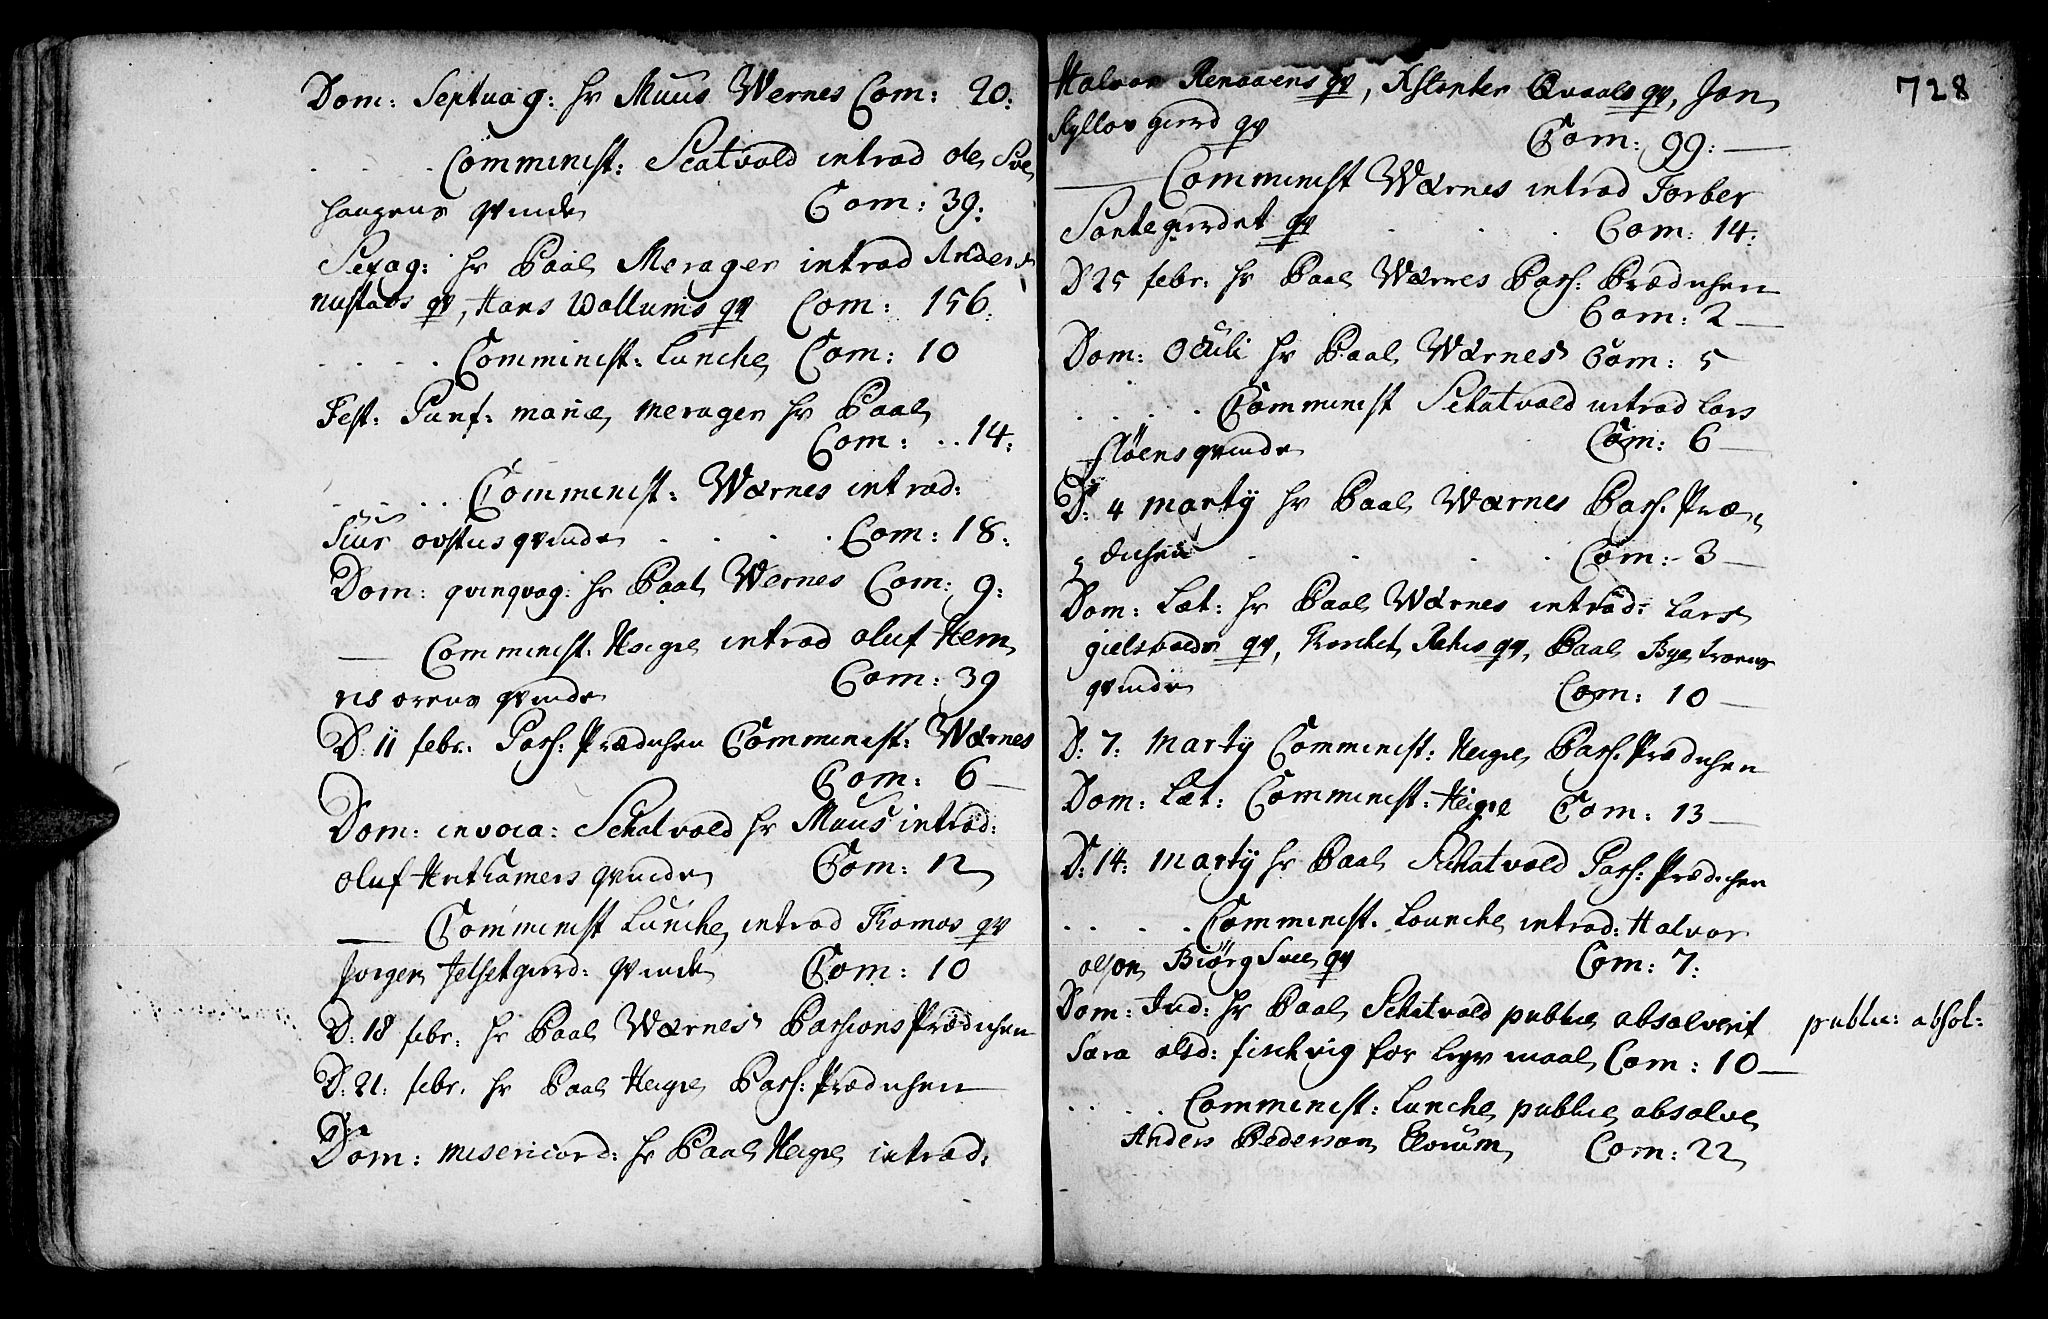 Dom: Septuag: hr Muus Wernes Com: 20:
. . . . Comminist: Scatvold introd ole Sve
haugens qvinde Com: 39:
Sexag: hr Paal Merager introd Anders
nustads qv, Hans Wollums qv Com: 156.
. . . . Comminist: Luncke Com: 10
Fest: Purif: mariæ merager hr Paal
Com: . . 14:
. . . . Comminist: Wærnes introd:
Siur ovstus qvinde . . . . Com: 18:
Dom: qvinqvag: hr Paal Wernes Com: 9:
— Comminist: Heigre introd oluf Hem
Com: 39
qvinde
D: 11 febr: Pass: Prædichen Comminist: Wærnes
Com: 6 —
Dom: invoca: Schatvold hr Muus introd:
oluf Hrthamers qvinde Com: 12
— Comminist Luncke introd Thomas qv
Jorgen Jelsetgierd: qvinde Com: 10
D: 18 febr: hr Paal Wærnes Passions Prædichen
D: 21: febr. hr Paal Heigre Pass: Prædichen —
Dom: misericord: hr Paal Heigre introd:
Halvor Renaaens qv, Kstenter Qvaals qv, Jon
Kyllos gierd qv Com: 99: —
— Comminist Wærnes introd Torber
Santegierdet qv . . . Com: 14:
D 25 febr: hr Paal Wærnes Pass: Prædichen
Com: 2 —
Dom: Oculi hr Paal Wærnes Com: 5
. . . . Comminist Schatvold introd Lars
Fløens qvinde Com: 6 —
D: 4 martij hr Paal Wærnes Pass. Præ
dichen . . . . Com: 3 —
Dom: Læt: hr Paal Wærnes introd: Lars
gielsvolds qv, Rehes qv, Paal Bye troens
qvinde Com: 10 —
D: 7: Martij Comminist: Heigre Pass: Prædichen
Dom: Læt: Comminist: Heigre Com: 13 —
D: 14: Martij hr Paal Schatvold Pass: Prædichen
. . . . Comminist. Louncke introd: Halvor
olson Biörg Svee qv Com: 7:
Dom: Jud: hr Paal Schatvold public absolverit
Sara olsd: fischvig for leyr maal Com: 10 —
. . . . Comminist: Luncke public absolve
Anders Pederson Elvrum Com: 22
728
public: absol: